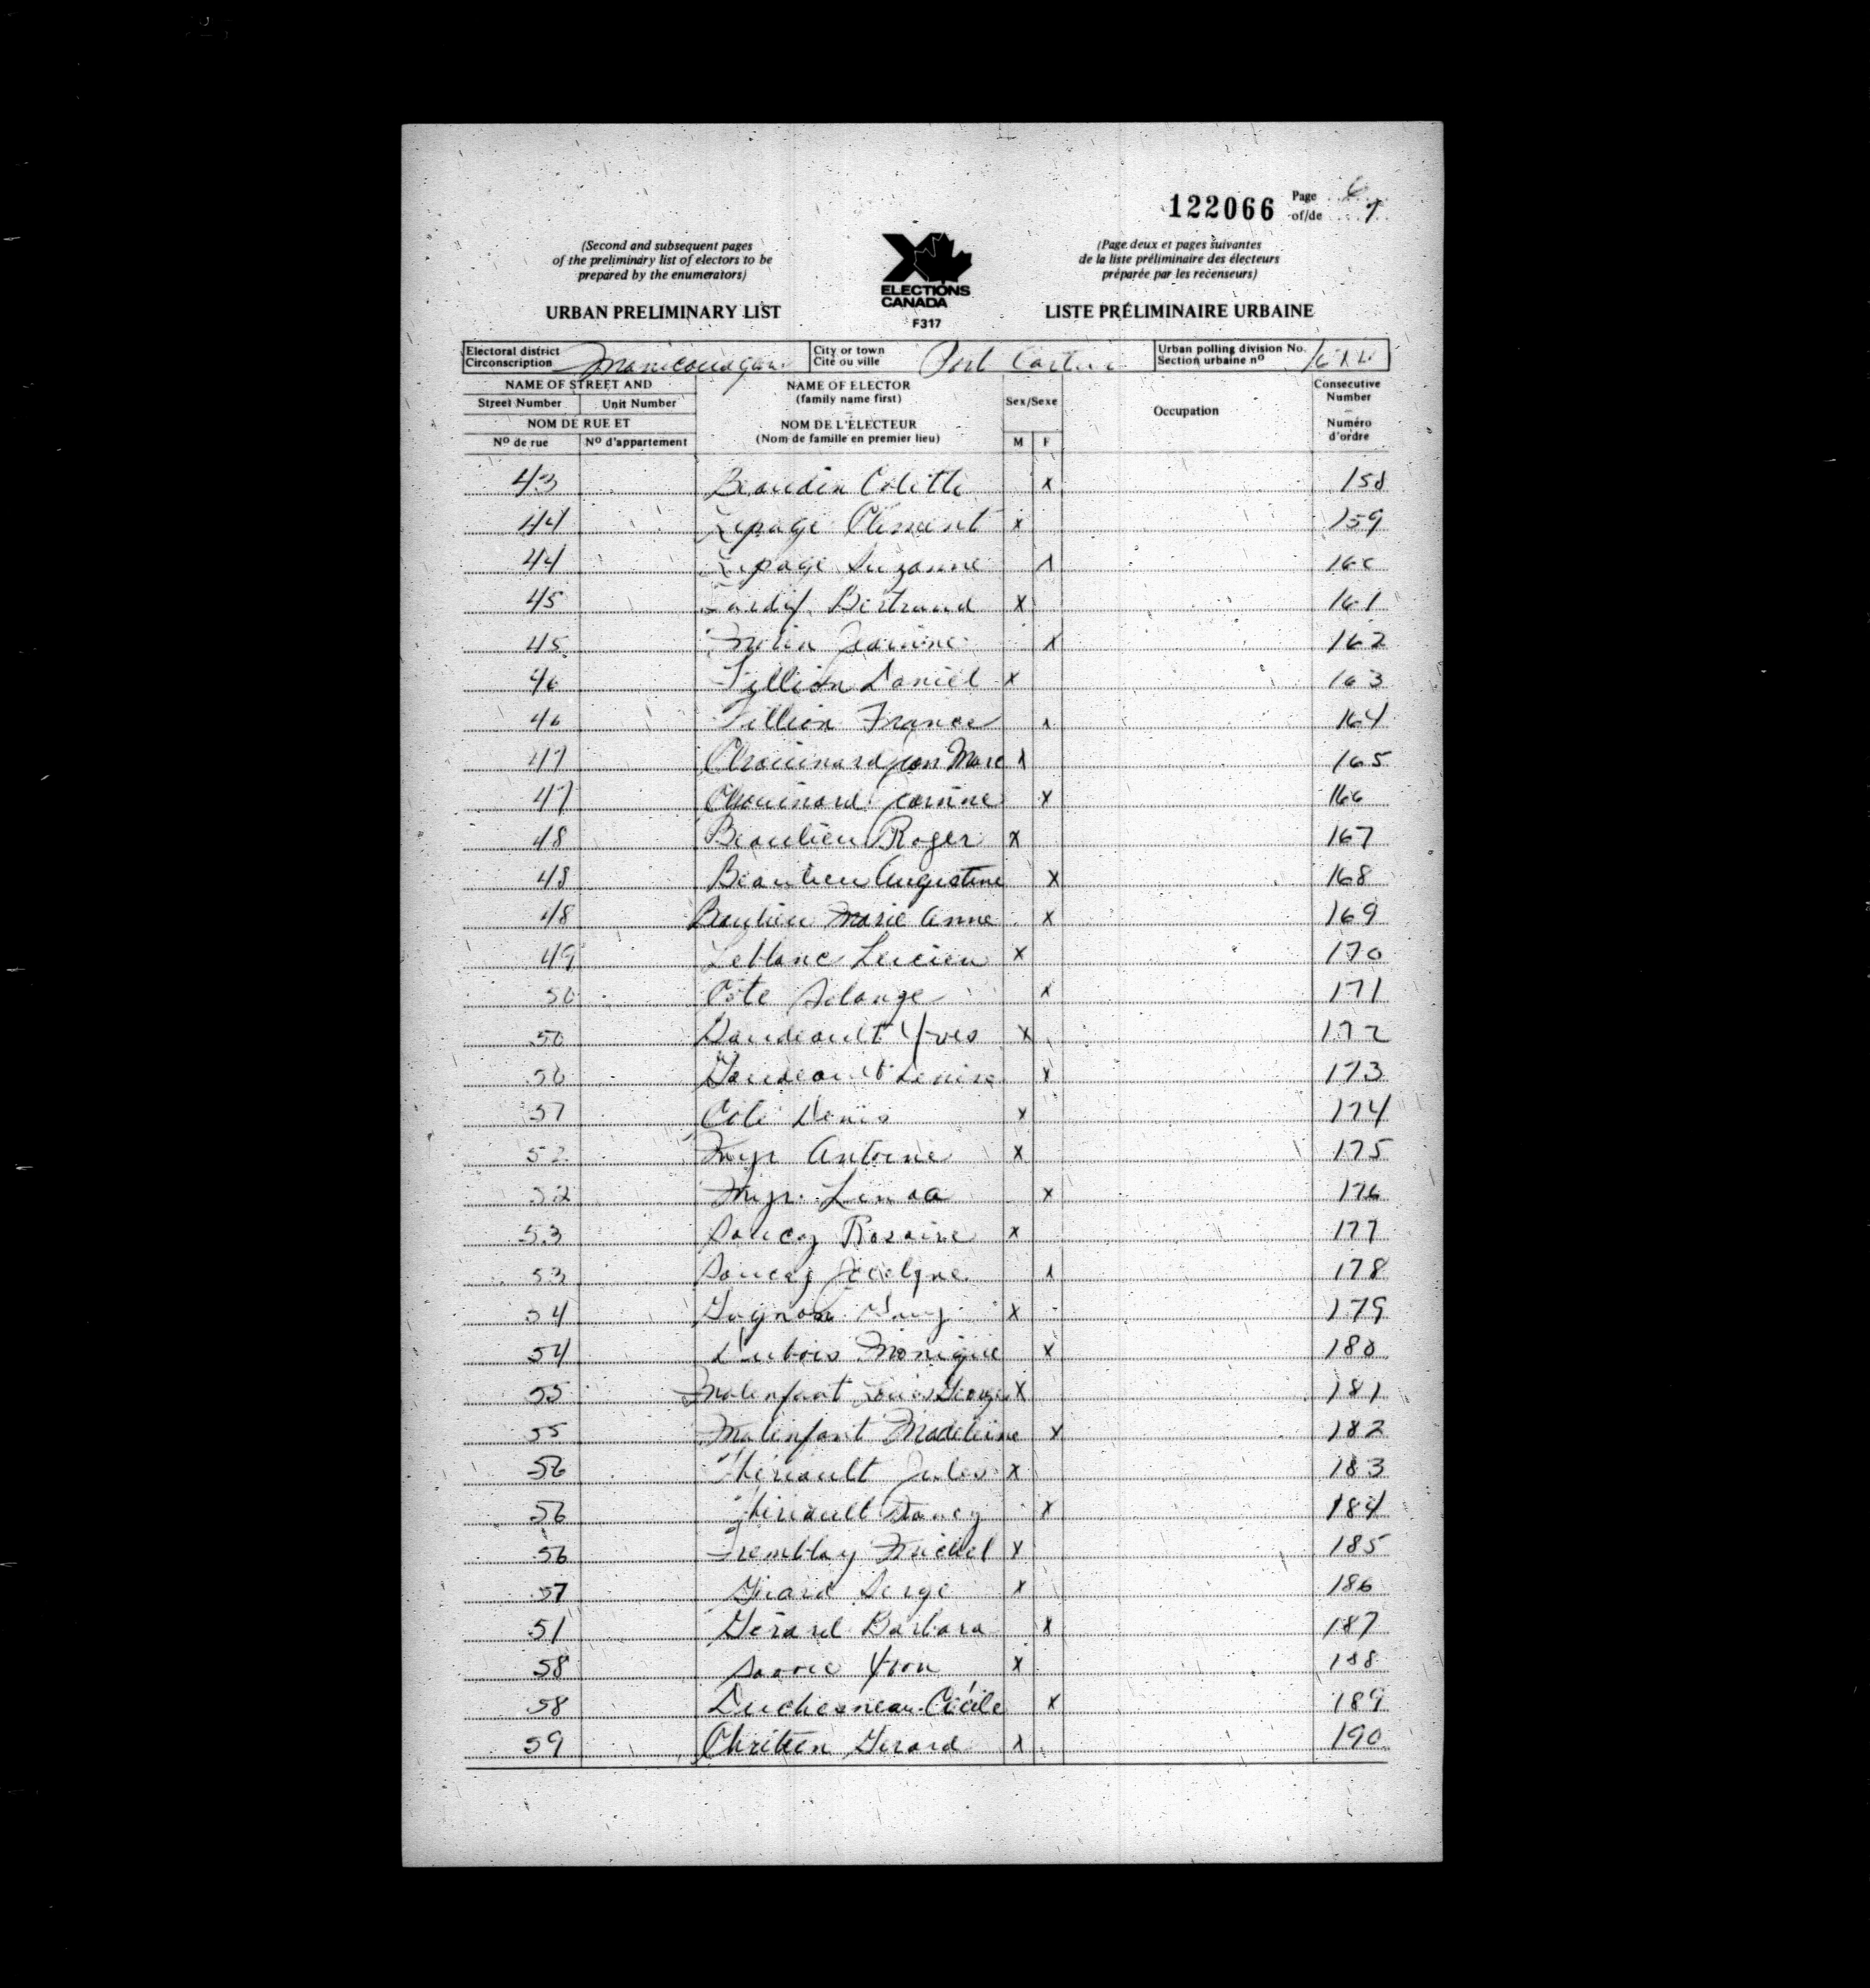 122066 Page 6
of/de 7
(Second and subsequent pages
of the preliminary list of electors to be
prepared by the enumerators)
URBAN PRELIMINARY LIST
ELECTIONS
CANADA
F317
(Page deux et pages suivantes
de la liste préliminaire des électeurs
préparée par les recenseurs)
LISTE PRÉLIMINAIRE URBAINE
Electoral district
Circonscription Manicouagan
City or town
Cité ou ville Port Cartier
Urban polling division No.
Section urbaine nº
NAME OF STREET AND
Street Number Unit Number
NOM DE RUE ET
Nº de rue Nº d'appartement
NAME OF ELECTOR
(family name first)
NOM DE L'ÉLECTEUR
(Nom de famille en premier lieu)
Sex/Sexe
M F
Occupation
Consecutive
Number
Numéro
d'ordre
43 Beaudin Colette x 158
44 Lepage Clement x 159
44 Lepage Suzanne x 160
45 Tardif Bertrand x 161
45 Morin Jeanine x 162
46 Fillion Daniel x 163
46 Fillion France x 164
47 Chouinard jean Marc x 165
47 Chouinard x 166
48 Beaulieu Roger x 167
48 Beaulieu Augustine x 168
48 Beaulieu Marie Anne x 169
49 Leblanc Lucien x 170
50 Côté Solange x 171
50 Yves x 172
50 Denise x 173
51 Coté Denis x 174
52 Antoine x 175
52 Linda x 176
53 Soucy Rosaire x 177
53 Soucy Jocelyne x 178
54 Gagnon Guy x 179
54 Dubois Monique x 180
55 Malenfant Louis Georges x 181
55 Malenfant Madeleine x 182
56 Thériault Jules x 183
56 Thériault Nancy x 184
56 Tremblay Michel x 185
57 Girard Serge x 186
57 Girard Barbara x 187
58 Savoie Yvon x 188
58 Duchesneau Cécile x 189
59 Chrétien Gerard x 190